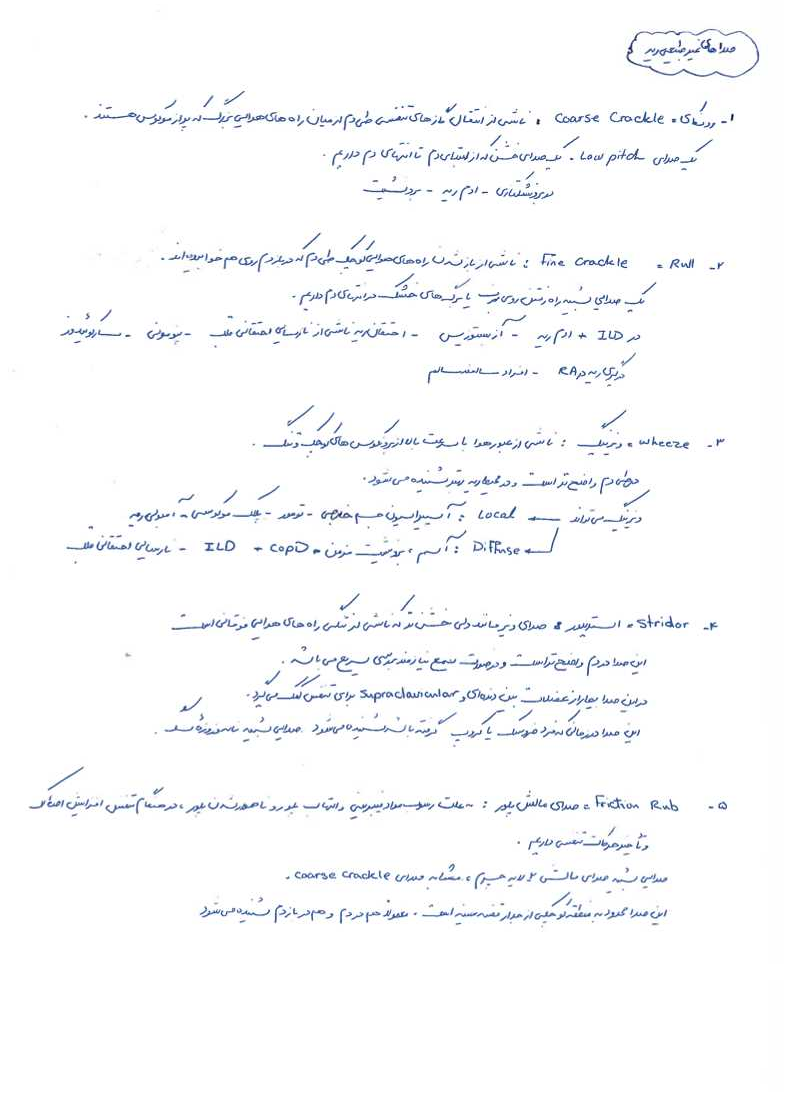 صداهای غیرطبیعی ریه
۱- رونکای = Coarse Crackle : ناشی از انتقال گازهای تنفسی طی دم از میان راه های هوایی بزرگ که پر از موکوس هستند .
یک صدای Low pitch . یک صدای خشن که از ابتدای دم تا انتهای دم داریم .
برونشکتازی - ادم ریه - برونشیت
۲- Rull = Fine Crackle : ناشی از باز شدن راه های هوایی کوچک طی دم که در بازدم روی هم خوابیده‌اند .
یک صدای شبیه راه رفتن روی برف یا برگ های خشک در انتهای دم داریم .
در ILD + ادم ریه - آزبستوزیس - احتقان ریه ناشی از نارسایی احتقانی قلب - پنومونی - سارکوئیدوز
درگیری ریه در RA - افراد سالمند سالم
۳- Wheeze = ویزینگ : ناشی از عبور هوا با سرعت بالا از برونکوس های کوچک و تنگ .
در طی دم واضح تر است و در محیط ریه بهتر شنیده می شود .
ویزینگ می تواند Local : آسپیراسیون جسم خارجی - تومور - پلاک موکوسی - آمبولی ریه
Diffuse : آسم ، برونشیت مزمن = COPD + ILD - نارسایی احتقانی قلب
۴- Stridor = استریدور : صدای ویز مانند ولی خشن تر که ناشی از تنگی راه های هوایی فوقانی است
این صدا در دم واضح تر است و در صورت سمع نیازمند بررسی سریع می باشد .
در این صدا بیمار از عضلات بین دنده‌ای و Supraclavicular برای تنفس کمک می گیرد .
این صدا در زمانی که فرد خروسک یا کروپ گرفته باشد شنیده می شود . صدایی شبیه زوزه سگ .
۵- Friction Rub = صدای مالش پلور : به علت رسوب مواد فیبرینی و التهاب پلور و ناهموار شدن پلور ، در هنگام تنفس افزایش اصطکاک
و تأخیر حرکات تنفسی داریم .
صدایی شبیه صدای مالش ۲ لایه چرم ، مشابه صدای Coarse Crackle .
این صدا محدود به منطقه کوچکی از جدار قفسه سینه است ، معمولاً هم در دم و هم در بازدم شنیده می شود